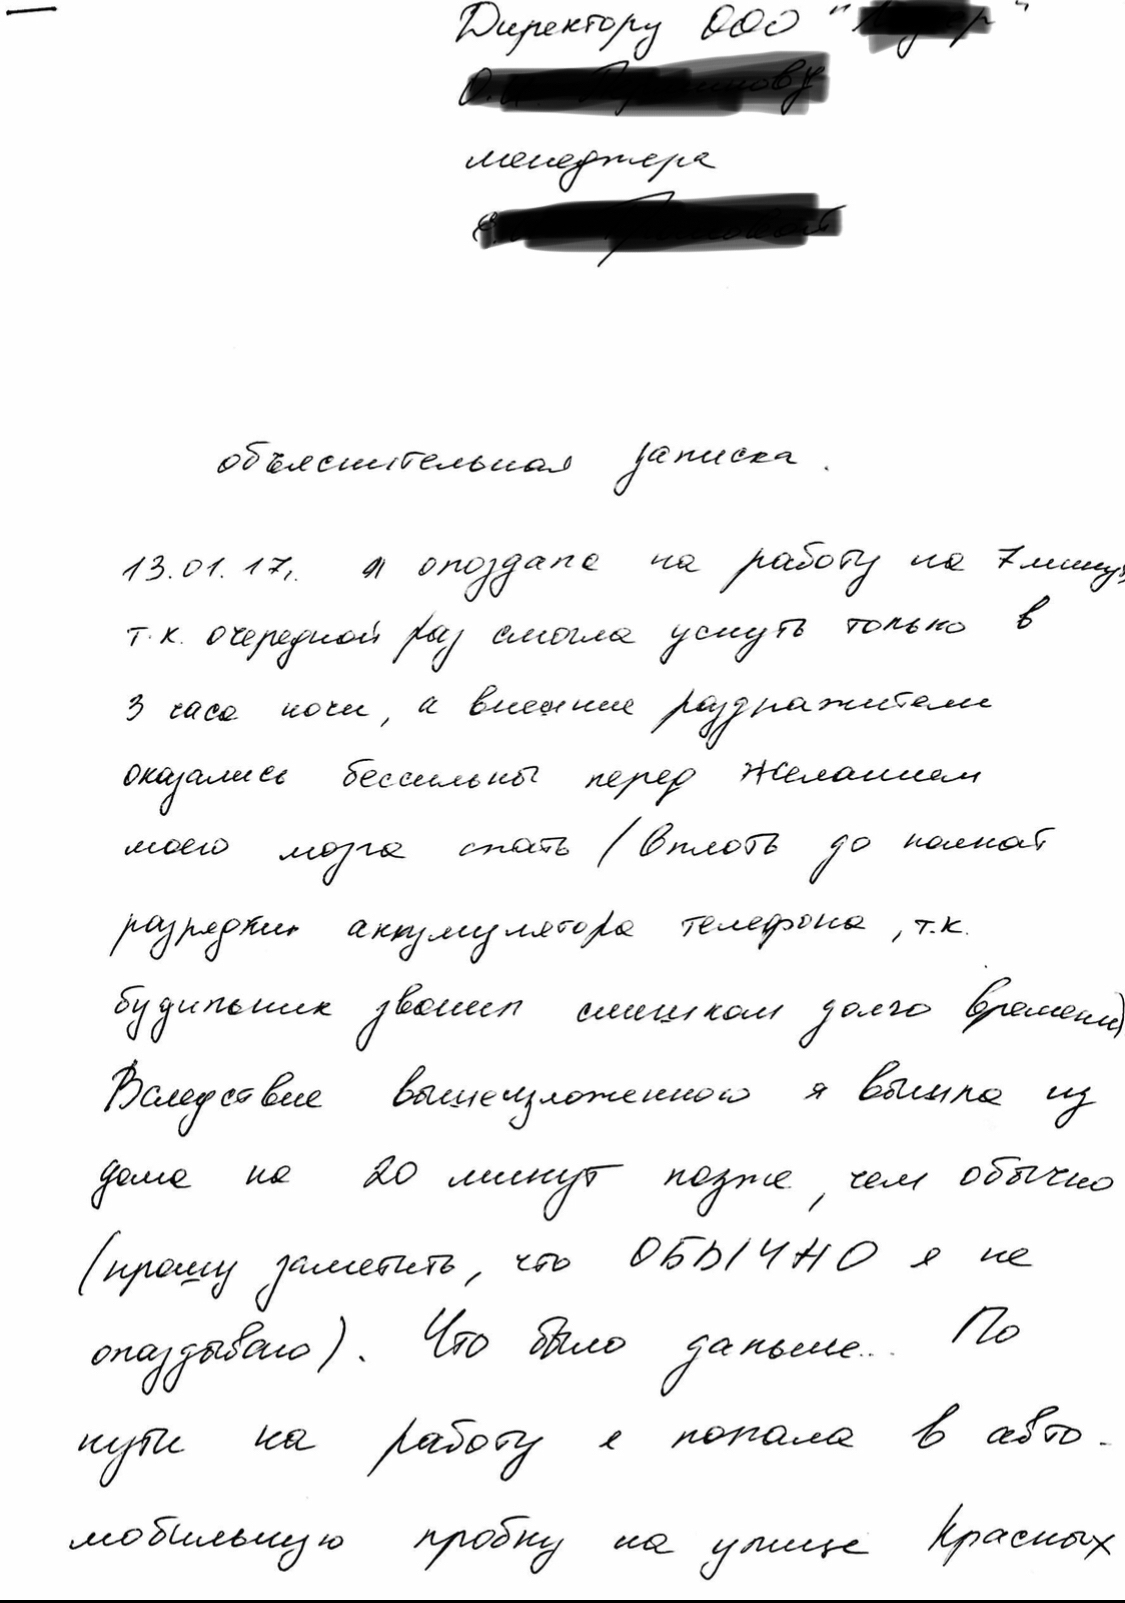 Директору ООО "
менеджера
объяснительная записка.
13.01.17г. я опоздала на работу на 7 минут
т.к. очередной раз смогла уснуть только в
3 часа ночи, а внешние раздражители
оказались бессильны перед желанием
моего мозга спать (вплоть до полной
разрядки аккумулятора телефона, т.к.
будильник звонил слишком долго времени)
Вследствие вышеизложенного я вышла из
дома на 20 минут позже, чем обычно
(прошу заметить, что ОБЫЧНО я не
опаздываю). Что было дальше... По
пути на работу я попала в авто-
мобильную пробку на улице Красных